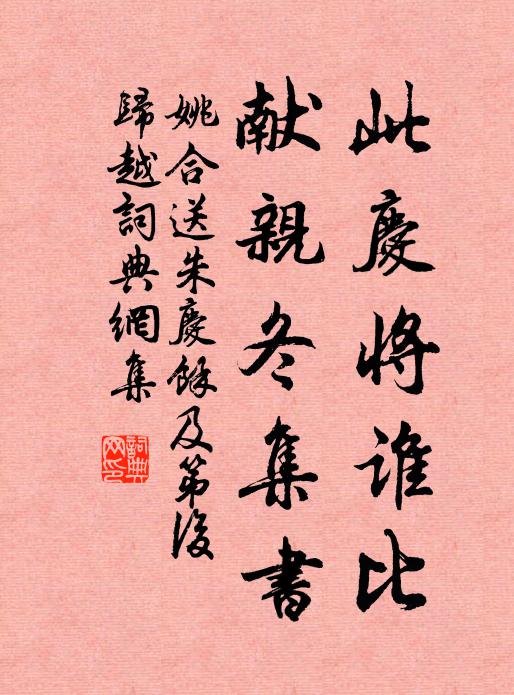 此慶將誰比
献親冬集書
姚合送朱慶餘及第後
歸越詞典網集
詞典
网印